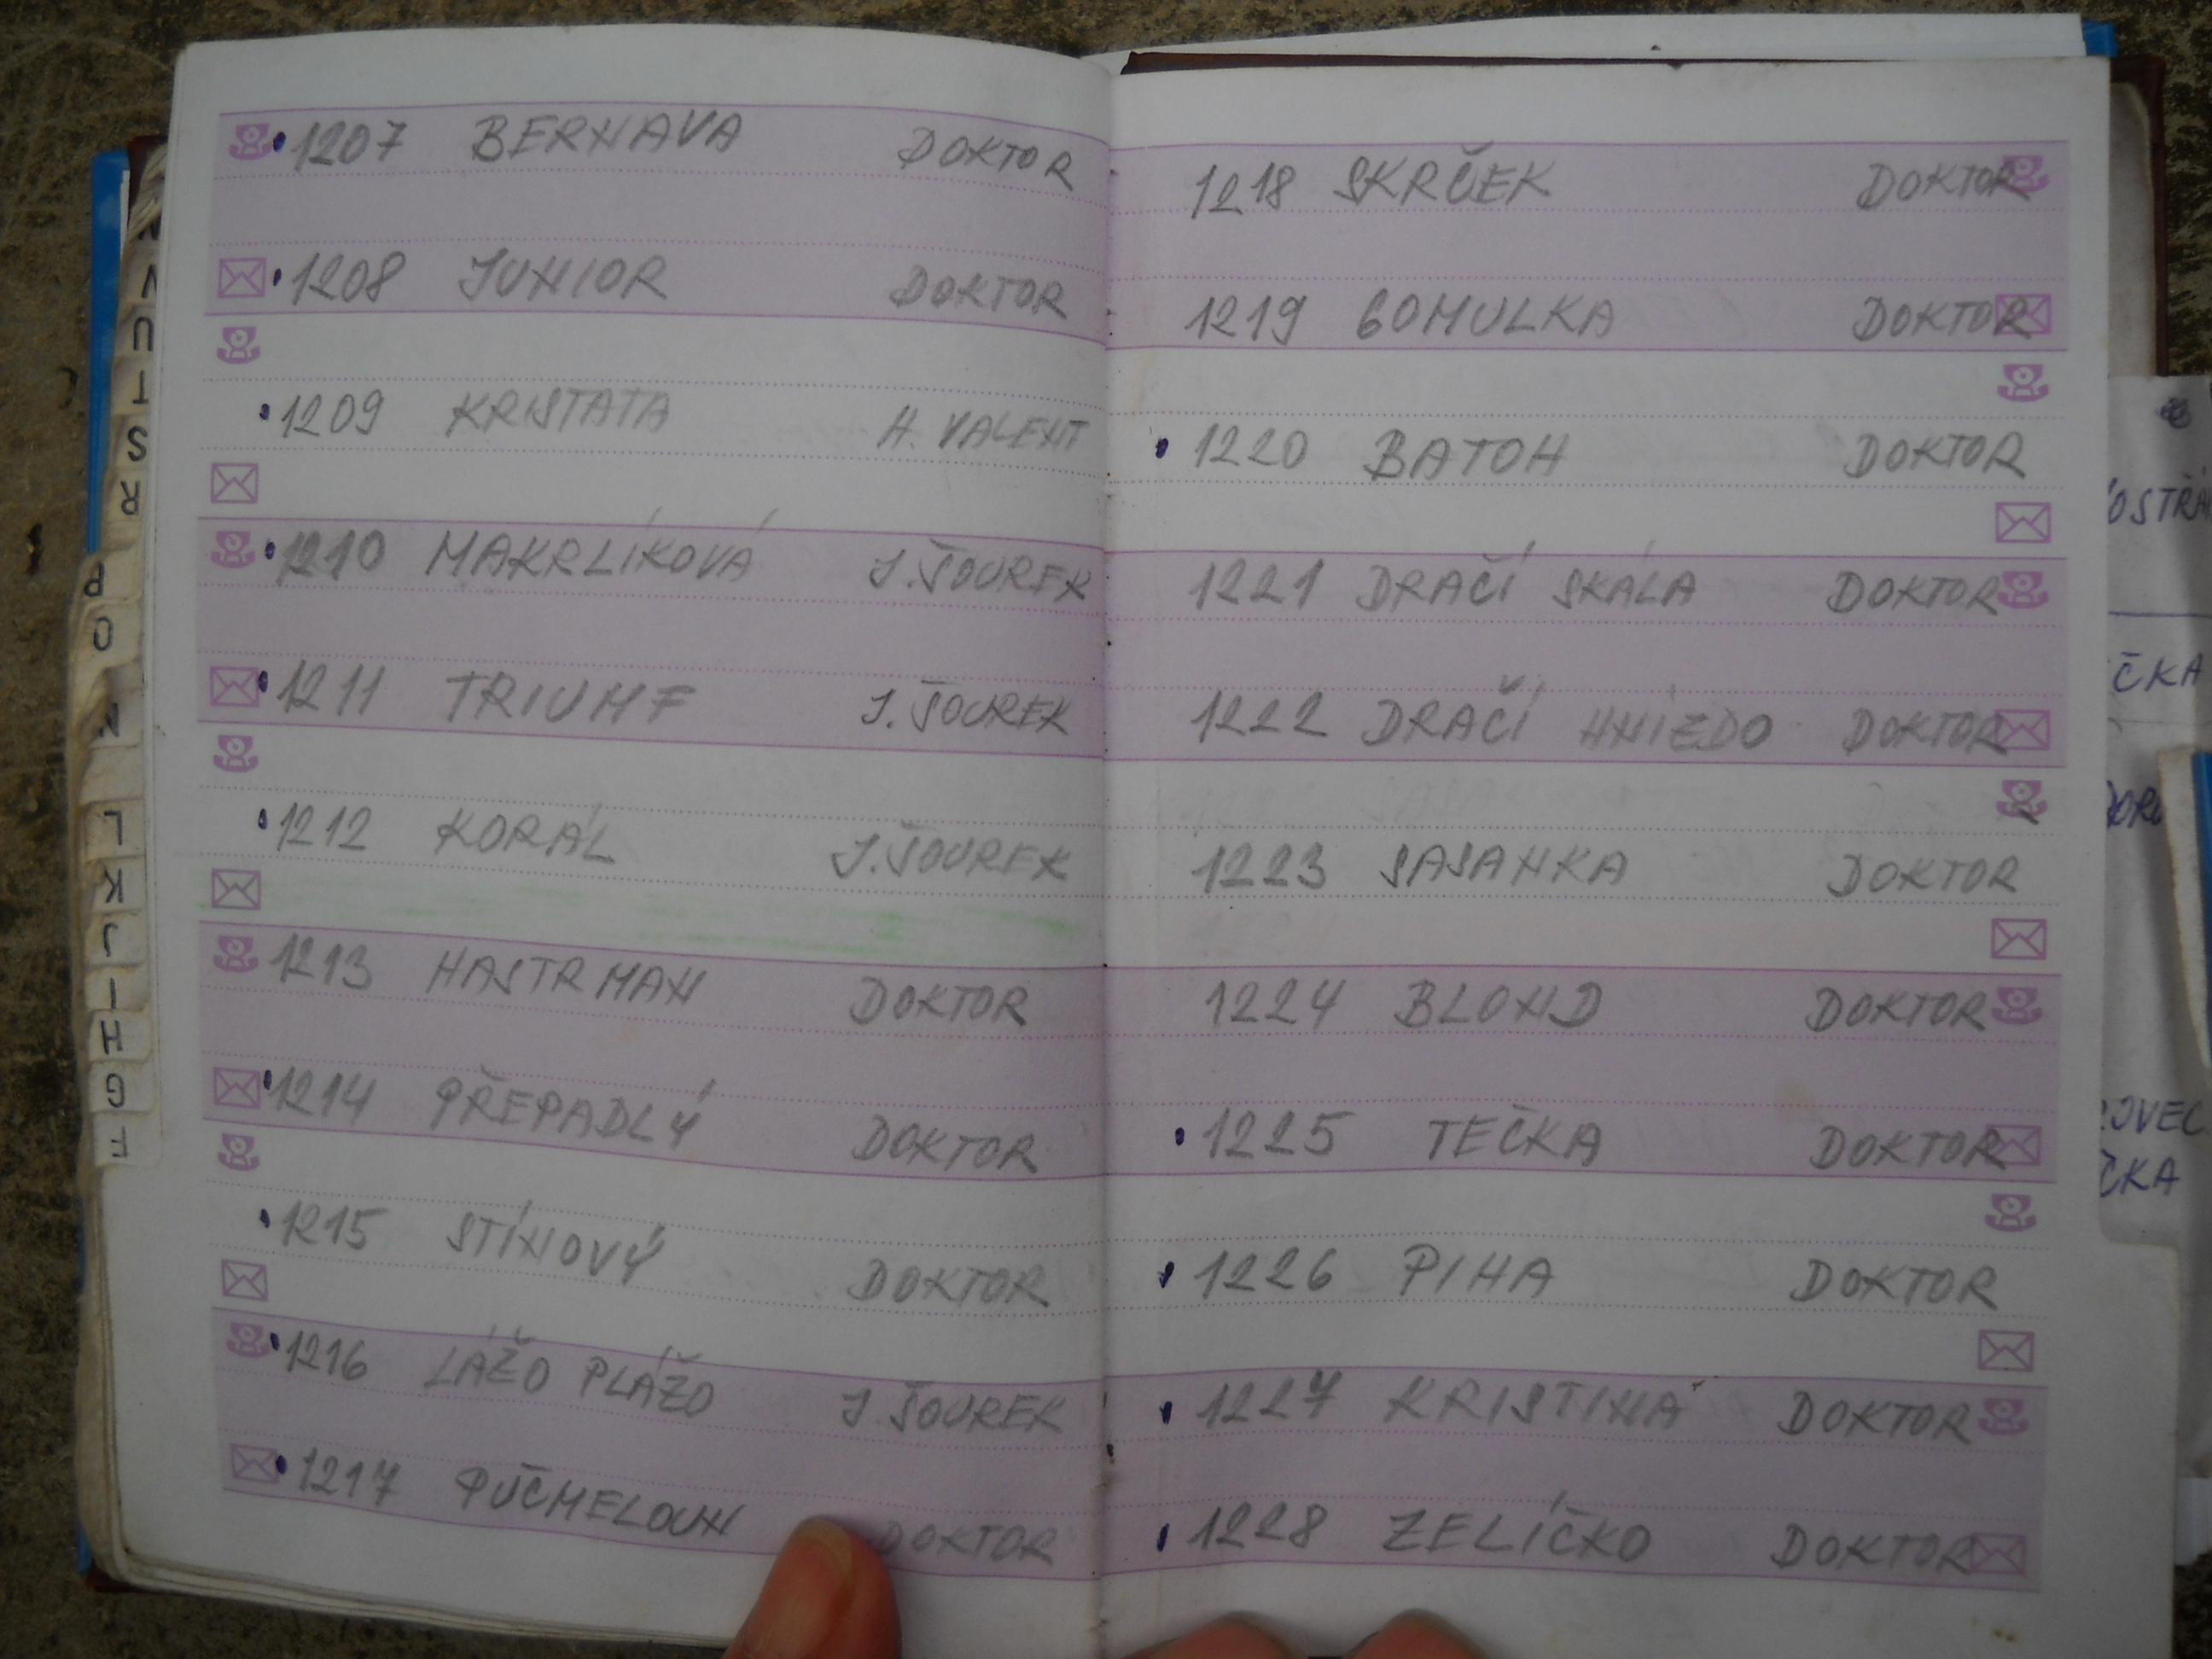 1207 BERNAVA DOKTOR
1208 JUNIOR DOKTOR
1209 KRISTATA H. VALENT
1210 MAKRLÍKOVÁ J. ŠOUREK
1211 TRIUMF J. ŠOUREK
1212 KORÁL J. ŠOUREK
1213 HASTRMAN DOKTOR
1214 PŘEPADLÝ DOKTOR
1215 STÍNOVÝ DOKTOR
1216 LÁŽO PLÁŽO J. ŠOUREK
1217 PÚČMELOUN DOKTOR
1218 SKRČEK DOKTOR
1219 GOMULKA DOKTOR
1220 BATOH DOKTOR
1221 DRAČÍ SKÁLA DOKTOR
1222 DRAČÍ HNIEZDO DOKTOR
1223 SASANKA DOKTOR
1224 BLOND DOKTOR
1225 TEČKA DOKTOR
1226 PIHA DOKTOR
1227 KRISTINA DOKTOR
1228 ZELÍČKO DOKTOR
U
T
S
R
P
O
N
L
K
J
I
H
G
F
ČKA
ČKA